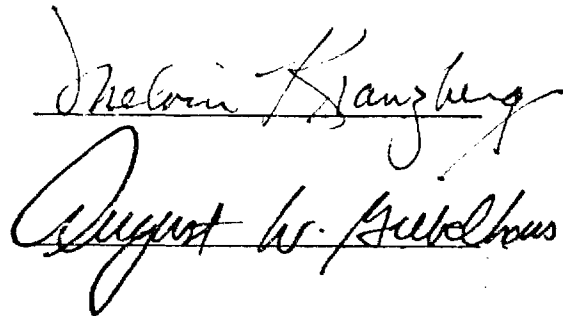 Melvin Kranzberg
August W. Giebelhaus